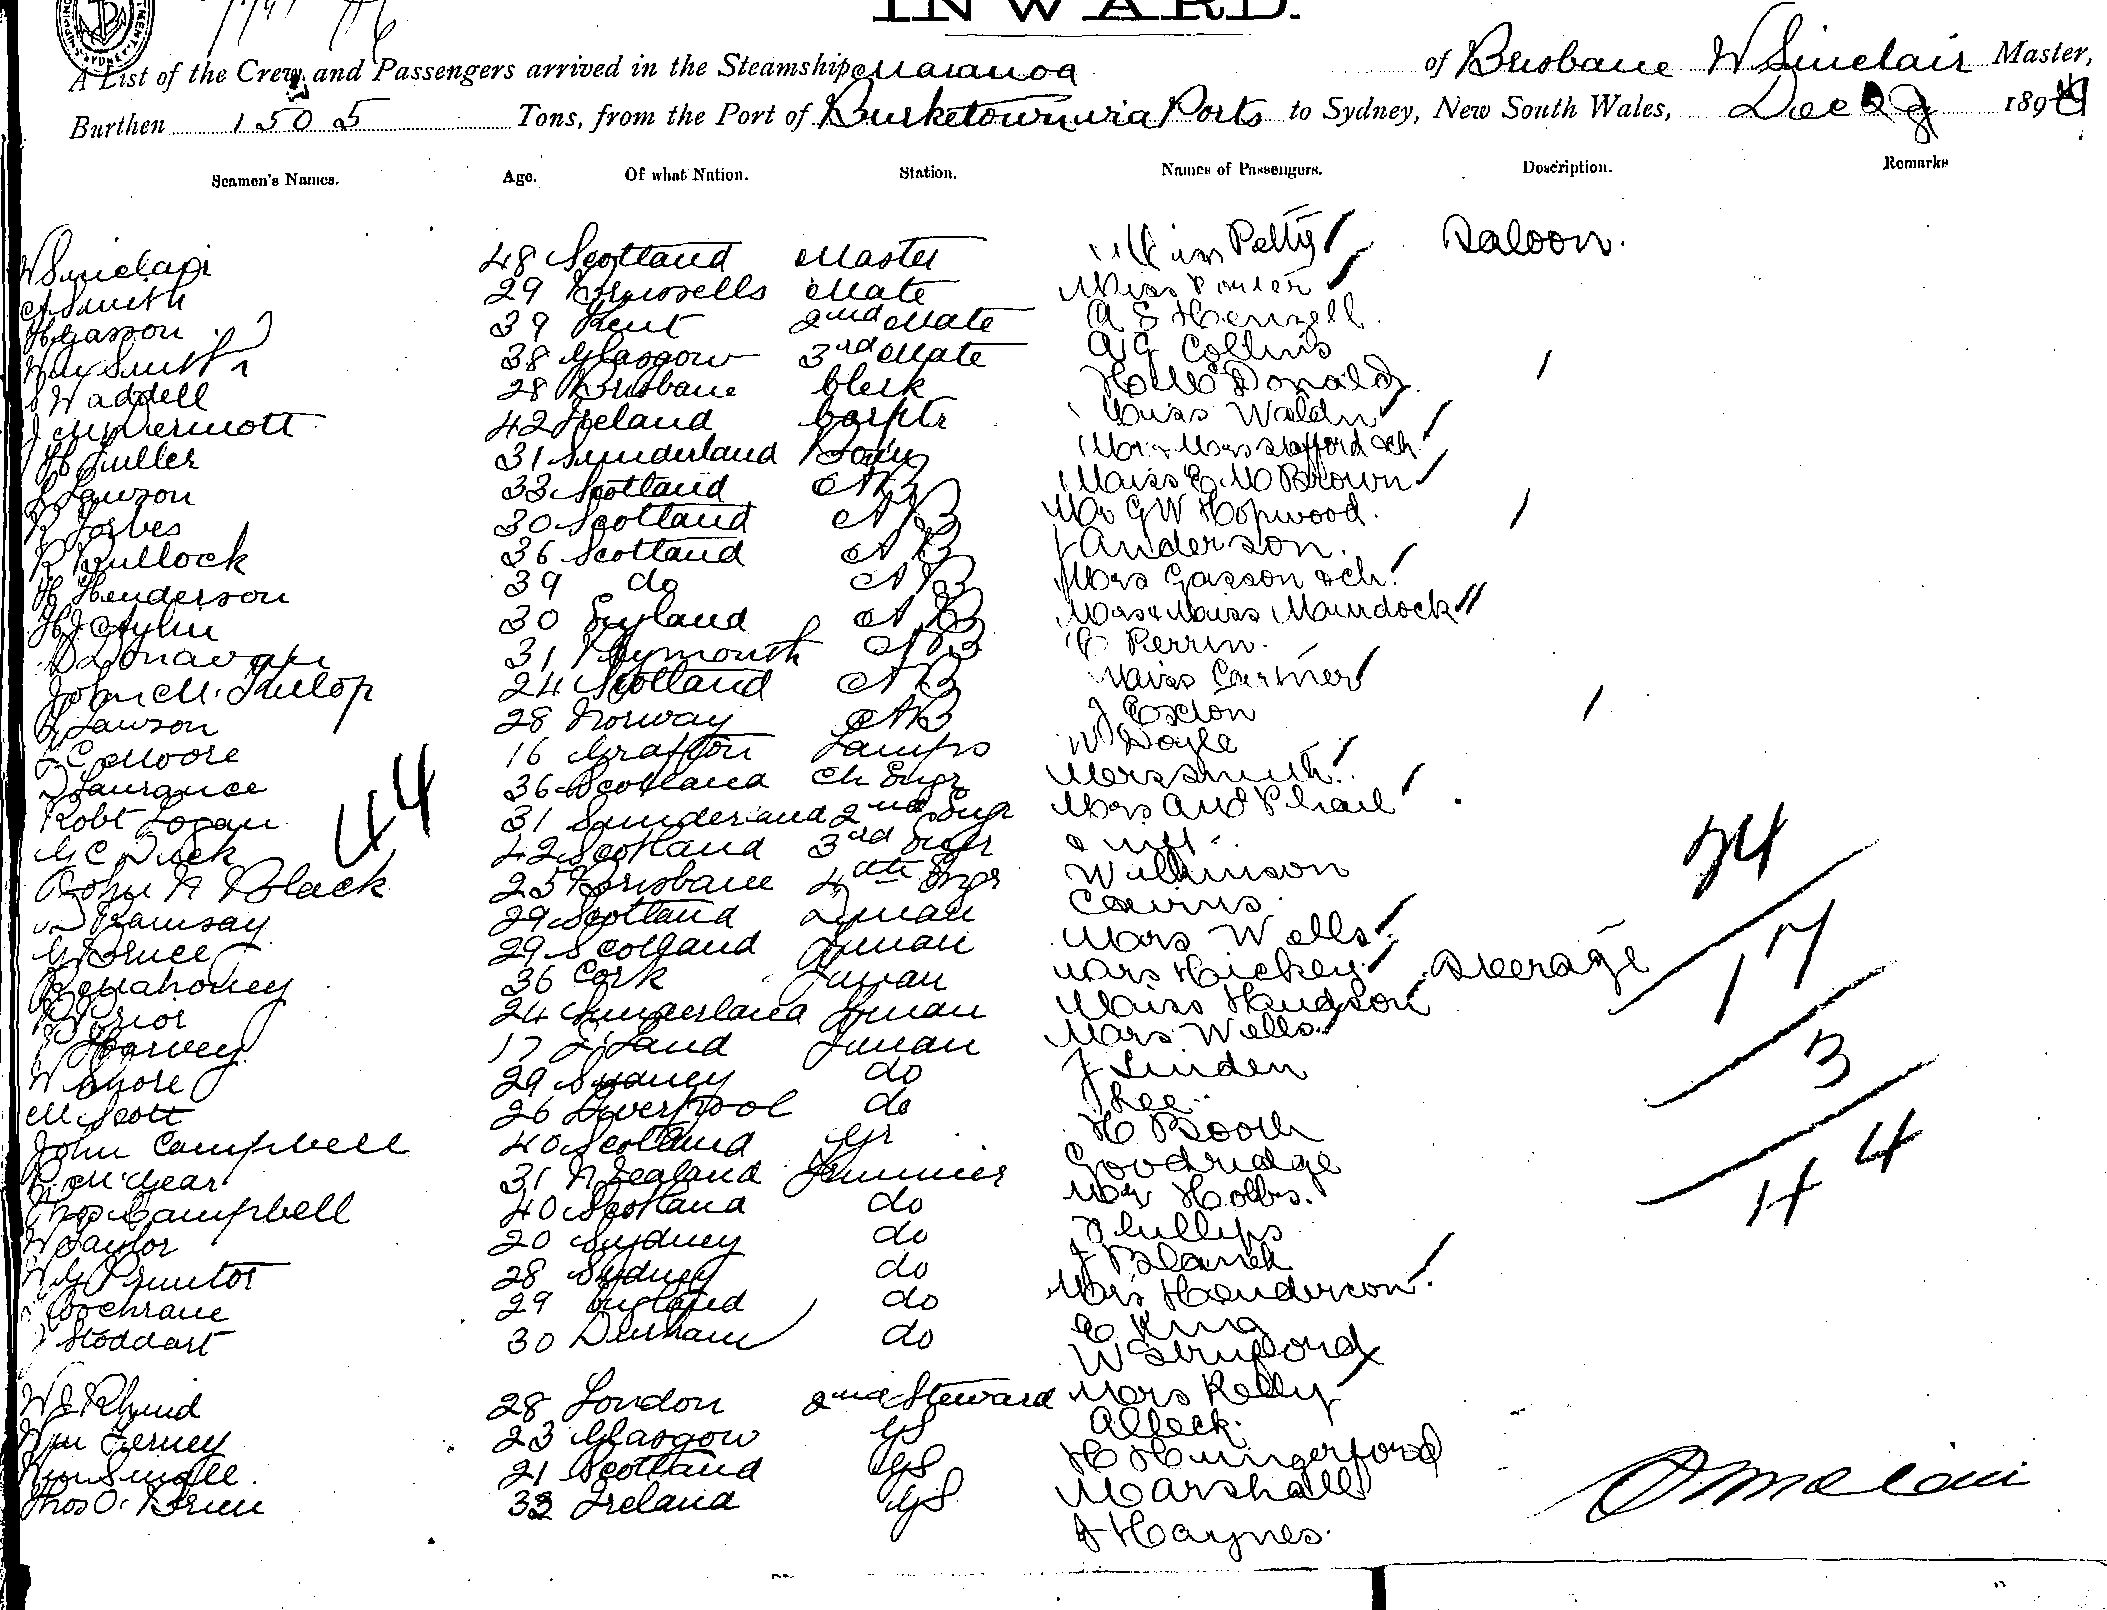 INWARD.
A List of the Crew and Passengers arrived in the Steamship Maranoa of Brisbane W Sinclair Master,
Burthen 1505 Tons, from the Port of Burketown via Ports to Sydney, New South Wales, Dec 189
Seamen's Names. Age. Of what Nation. Station. Names of Passengers. Description. Remarks
W Sinclair 48 Scotland Master Petty Saloon.
A Smith 29 Mate Miss Porter
H Gasson 39 Kent 2nd Mate A S Henzell
Wm Smith 38 Glasgow 3rd Mate A G Collins
J Waddell 28 Brisbane Clerk H McDonald
J McDermott 42 Ireland Carptr Miss Waldn
H Fuller 31 Sunderland Mr & Mrs Stafford & ch
J Lawson 33 Scotland AB Miss E M Brown
R Forbes 30 Scotland AB Mr G W Hopwood.
R Bullock 36 Scotland AB J Anderson.
H Henderson 39 do AB Mrs Gasson & ch
H J Aylin 30 England AB Mrs & Miss Murdock
D Donavan 31 Plymouth AB C Perrin.
John M. Dunlop 24 Scotland AB Miss
J Lawson 28 Norway AB J Exton
C Moore 16 Grafton Lamps W Doyle
D Laurance 36 Scotland Ch Engr Mrs Smith
Robt Logan 31 Sunderland 2nd Engr Mrs Phail
44
G C Dick 42 Scotland 3rd Engr
24
John N Black 25 Brisbane 4th Engr Wilkinson
D Ramsay 29 Scotland Fman Cairns
G Bruce 29 Scotland Fman Mrs Wells
17
R Mahoney 36 Cork Fman Mrs Hickey Steerage
R Prior 24 Sunderland Fman Miss Hudson
J Harvey 17 Fman Mrs Wells
W Shore 29 Sydney do J Linden
3
M Scott 26 Liverpool do Lee
John Campbell 40 Scotland Gr H Booth
44
R McGear 31 N Zealand Trimmer Goodridge
Thos Campbell 40 Scotland do Mr Hobbs.
W Taylor 20 Sydney do Phillips
W G 28 Sydney do J Blanch
Cochrane 29 England do Mrs Henderson
J Stoddart 30 Durham do C King
W
W J Rhind 28 London 2nd Steward Mrs Kelly
Wm Ferney 23 Glasgow GS Alleck.
Wm Smalle 21 Scotland GS H Hungerford
Thos O'Brien 33 Ireland GS Marshall
J Haynes.